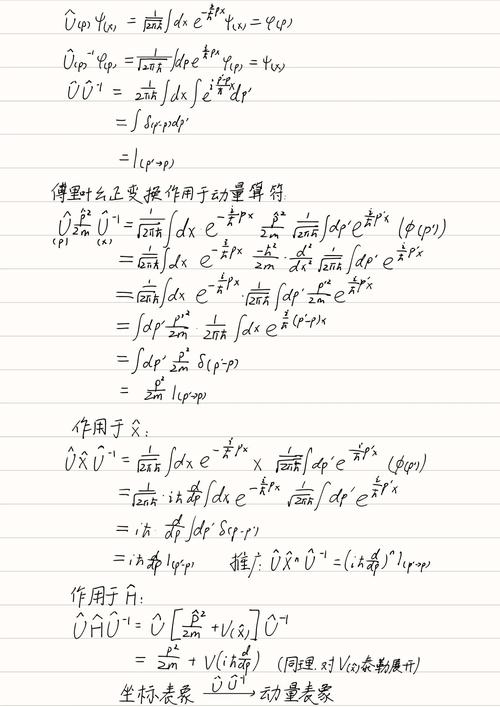 Û(p) ψ(x) = 1/√(2πħ) ∫dx e^(-i/ħ px) ψ(x) = φ(p)
Û(p)⁻¹ φ(p) = 1/√(2πħ) ∫dp e^(i/ħ px) φ(p) = ψ(x)
Û Û⁻¹ = 1/(2πħ) ∫dx ∫e^(i (p'-p)/ħ x) dp'
= ∫ δ(p'-p) dp'
= 1(p'→p)
傅里叶幺正变换作用于动量算符:
Û(p) p̂²/2m Û⁻¹(x) = 1/√(2πħ) ∫dx e^(-i/ħ px) p̂²/2m 1/√(2πħ) ∫dp' e^(i/ħ p'x) (φ(p'))
= 1/√(2πħ) ∫dx e^(-i/ħ px) -ħ²/2m · d²/dx² 1/√(2πħ) ∫dp' e^(i/ħ p'x)
= 1/√(2πħ) ∫dx e^(-i/ħ px) · 1/√(2πħ) ∫dp' p'²/2m e^(i/ħ p'x)
= ∫dp' p'²/2m · 1/(2πħ) ∫dx e^(i/ħ (p'-p)x)
= ∫dp' p²/2m δ(p'-p)
= p²/2m 1(p'→p)
作用于 x̂:
Û X̂ Û⁻¹ = 1/√(2πħ) ∫dx e^(-i/ħ px) x 1/√(2πħ) ∫dp' e^(i/ħ p'x) (φ(p'))
= 1/√(2πħ) · iħ d/dp ∫dx e^(-i/ħ px) 1/√(2πħ) ∫dp' e^(i/ħ p'x)
= iħ · d/dp ∫dp' δ(p-p')
= iħ d/dp 1(p'→p) 推广: Û X̂ⁿ Û⁻¹ = (iħ d/dp)ⁿ 1(p'→p)
作用于 Ĥ:
Û Ĥ Û⁻¹ = Û [p̂²/2m + V(x̂)] Û⁻¹
= p²/2m + V(iħ d/dp) (同理.对V(x)泰勒展开)
坐标表象 —Û Û⁻¹→ 动量表象